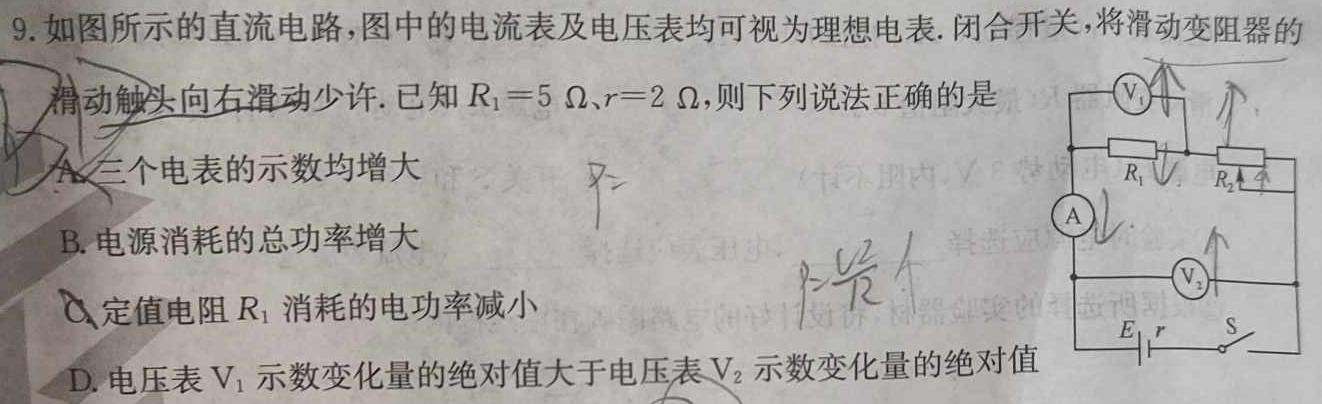 9. 如图所示的直流电路,图中的电流表及电压表均可视为理想电表. 闭合开关,将滑动变阻器的
滑动触头向右滑动少许. 已知 R₁=5 Ω、r=2 Ω,则下列说法正确的是
A. 三个电表的示数均增大
B. 电源消耗的总功率增大
C. 定值电阻 R₁ 消耗的电功率减小
D. 电压表 V₁ 示数变化量的绝对值大于电压表 V₂ 示数变化量的绝对值
V₁
R₁
R₂
A
V₂
E
r
S
P=